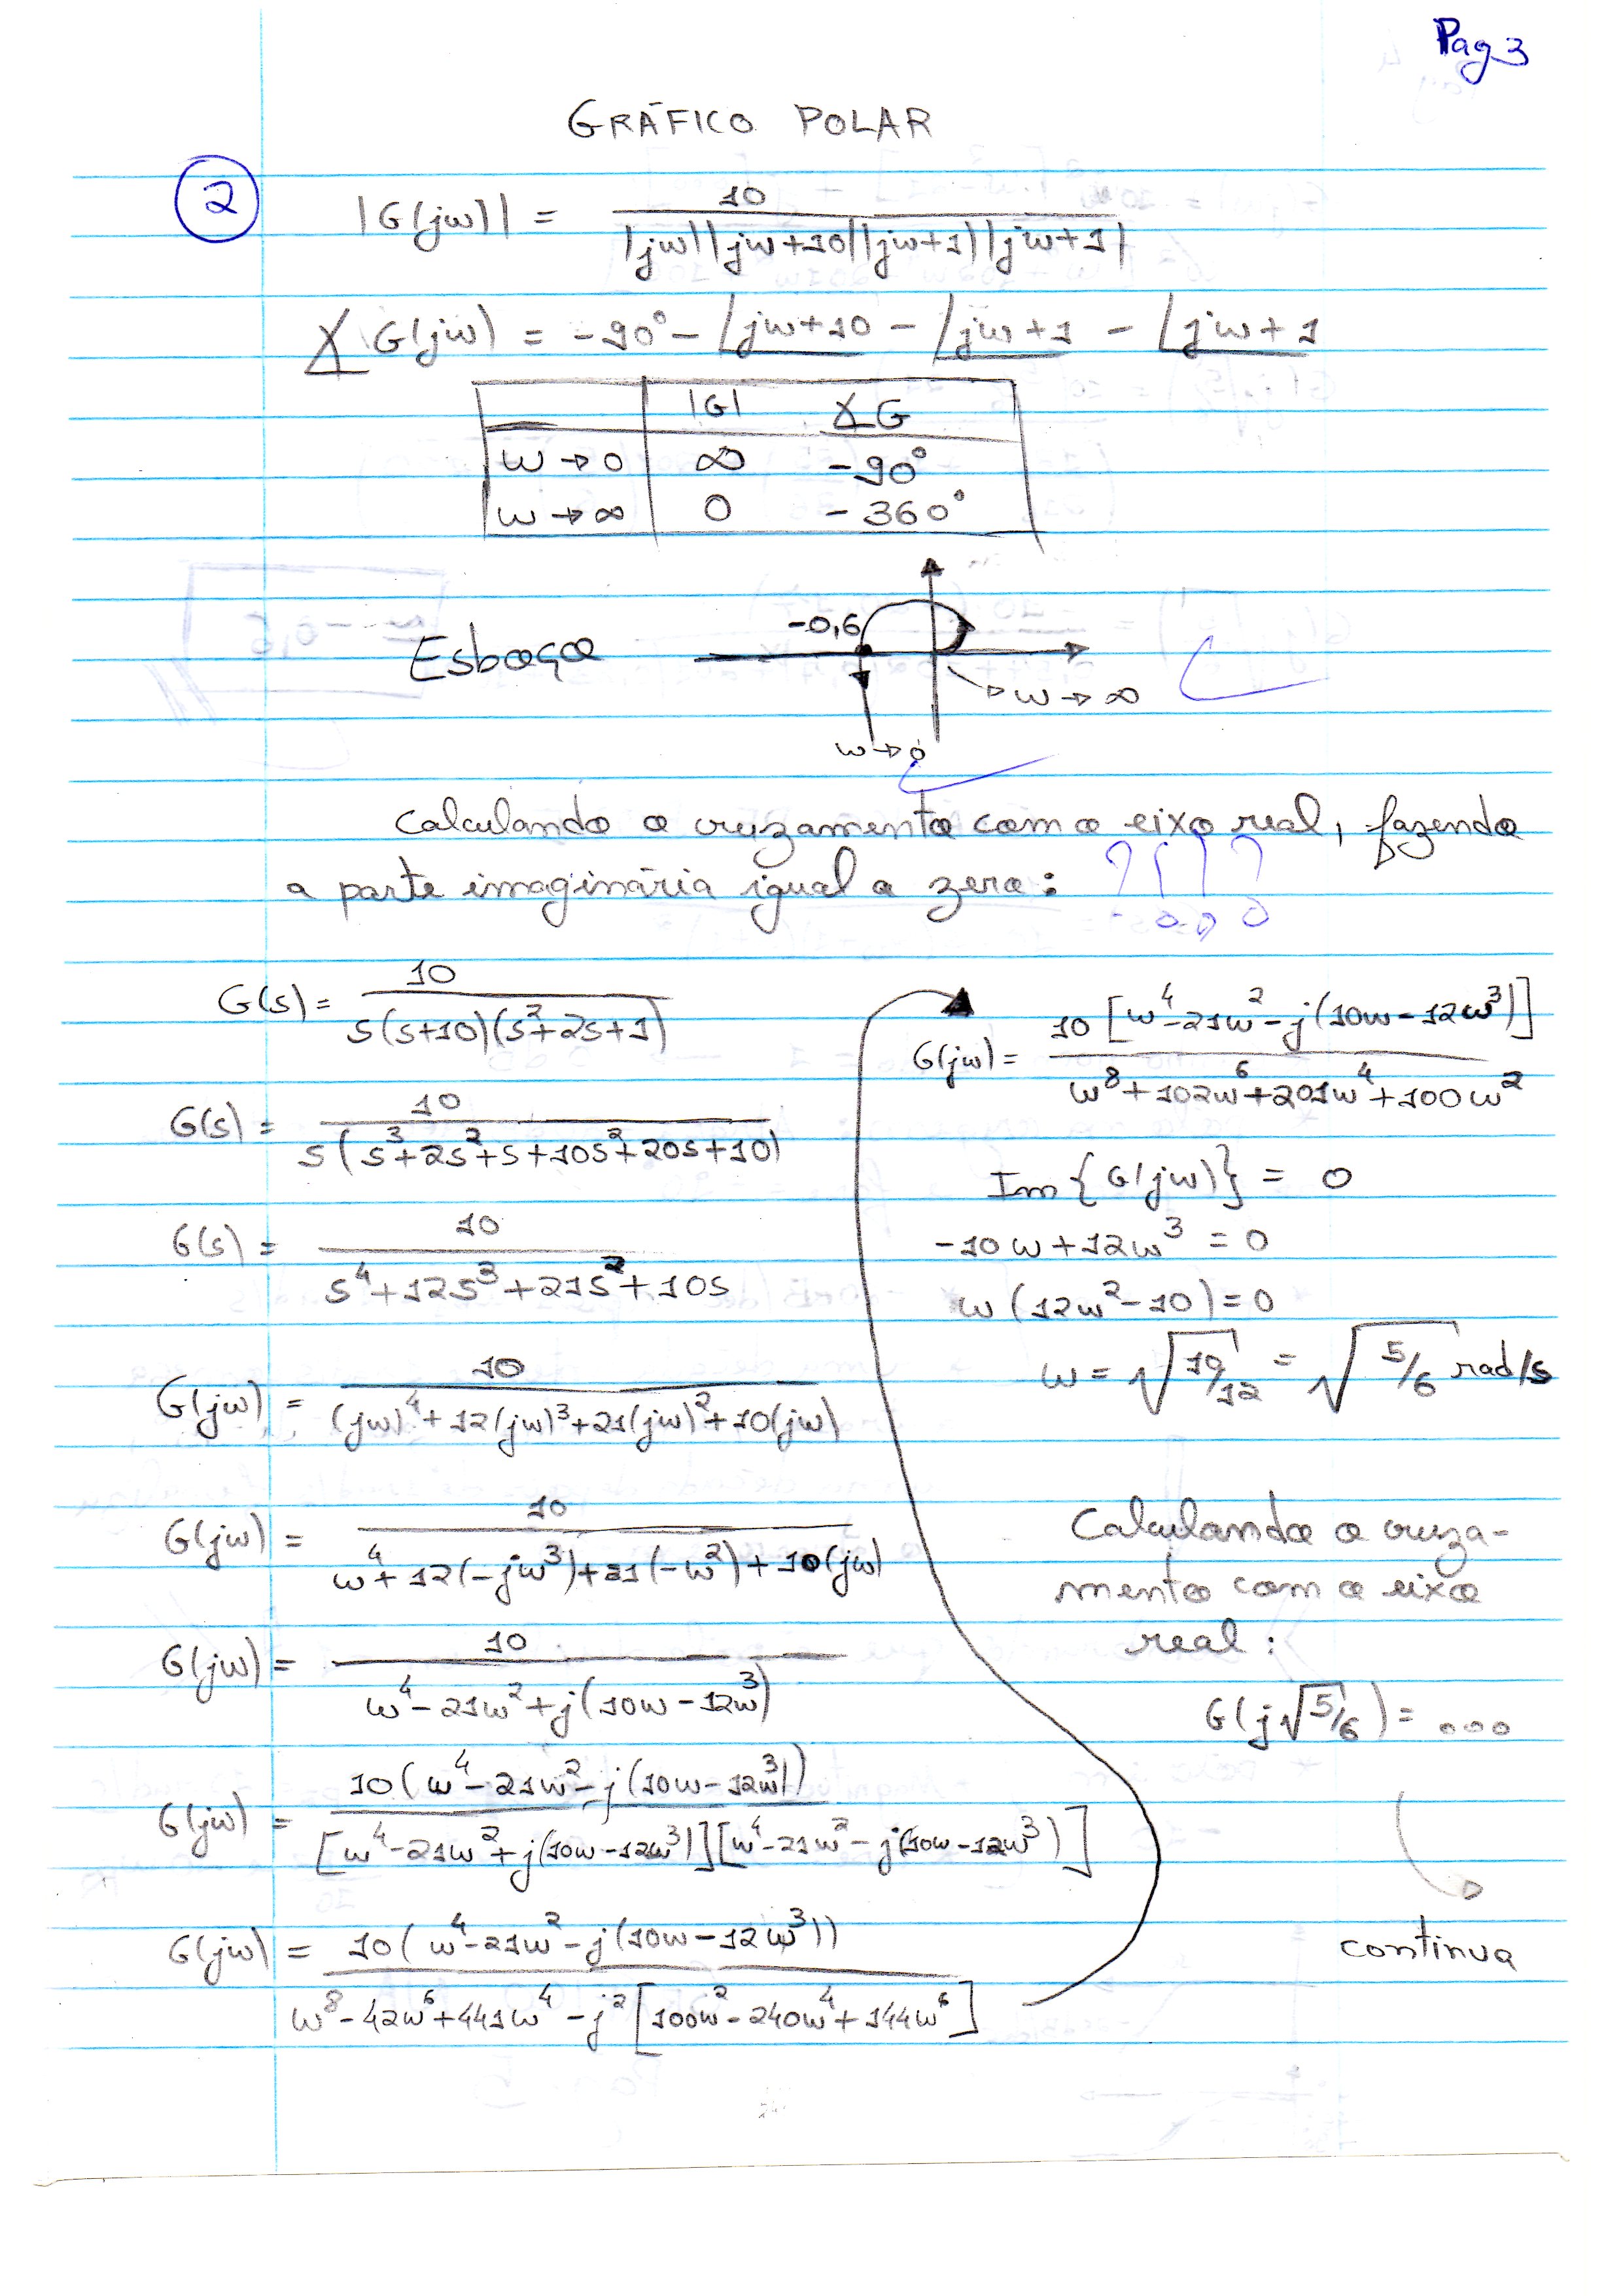 Pag 3
GRÁFICO POLAR
2
|G(jω)| = 10 / |jω||jω+10||jω+1||jω+1|
∡ G(jω) = -90° - ∠jω+10 - ∠jω+1 - ∠jω+1
|G| ∡G
ω→0 ∞ -90°
ω→∞ 0 -360°
Esboço
-0,6
ω→∞
ω→0
Calculando o cruzamento com o eixo real, fazendo
a parte imaginária igual a zero:
G(s) = 10 / s(s+10)(s²+2s+1)
G(s) = 10 / s(s³+2s²+s+10s²+20s+10)
G(s) = 10 / s⁴+12s³+21s²+10s
G(jω) = 10 / (jω)⁴+12(jω)³+21(jω)²+10(jω)
G(jω) = 10 / ω⁴+12(-jω³)+21(-ω²)+10(jω)
G(jω) = 10 / ω⁴-21ω²+j(10ω-12ω³)
G(jω) = 10(ω⁴-21ω²-j(10ω-12ω³)) / [ω⁴-21ω²+j(10ω-12ω³)][ω⁴-21ω²-j(10ω-12ω³)]
G(jω) = 10(ω⁴-21ω²-j(10ω-12ω³)) / ω⁸-42ω⁶+441ω⁴-j²[100ω²-240ω⁴+144ω⁶]
G(jω) = 10[ω⁴-21ω²-j(10ω-12ω³)] / ω⁸+102ω⁶+201ω⁴+100ω²
Im{G(jω)} = 0
-10ω+12ω³ = 0
ω(12ω²-10) = 0
ω = √10/12 = √5/6 rad/s
Calculando o cruza-
mento com o eixo
real:
G(j√5/6) = ...
continua